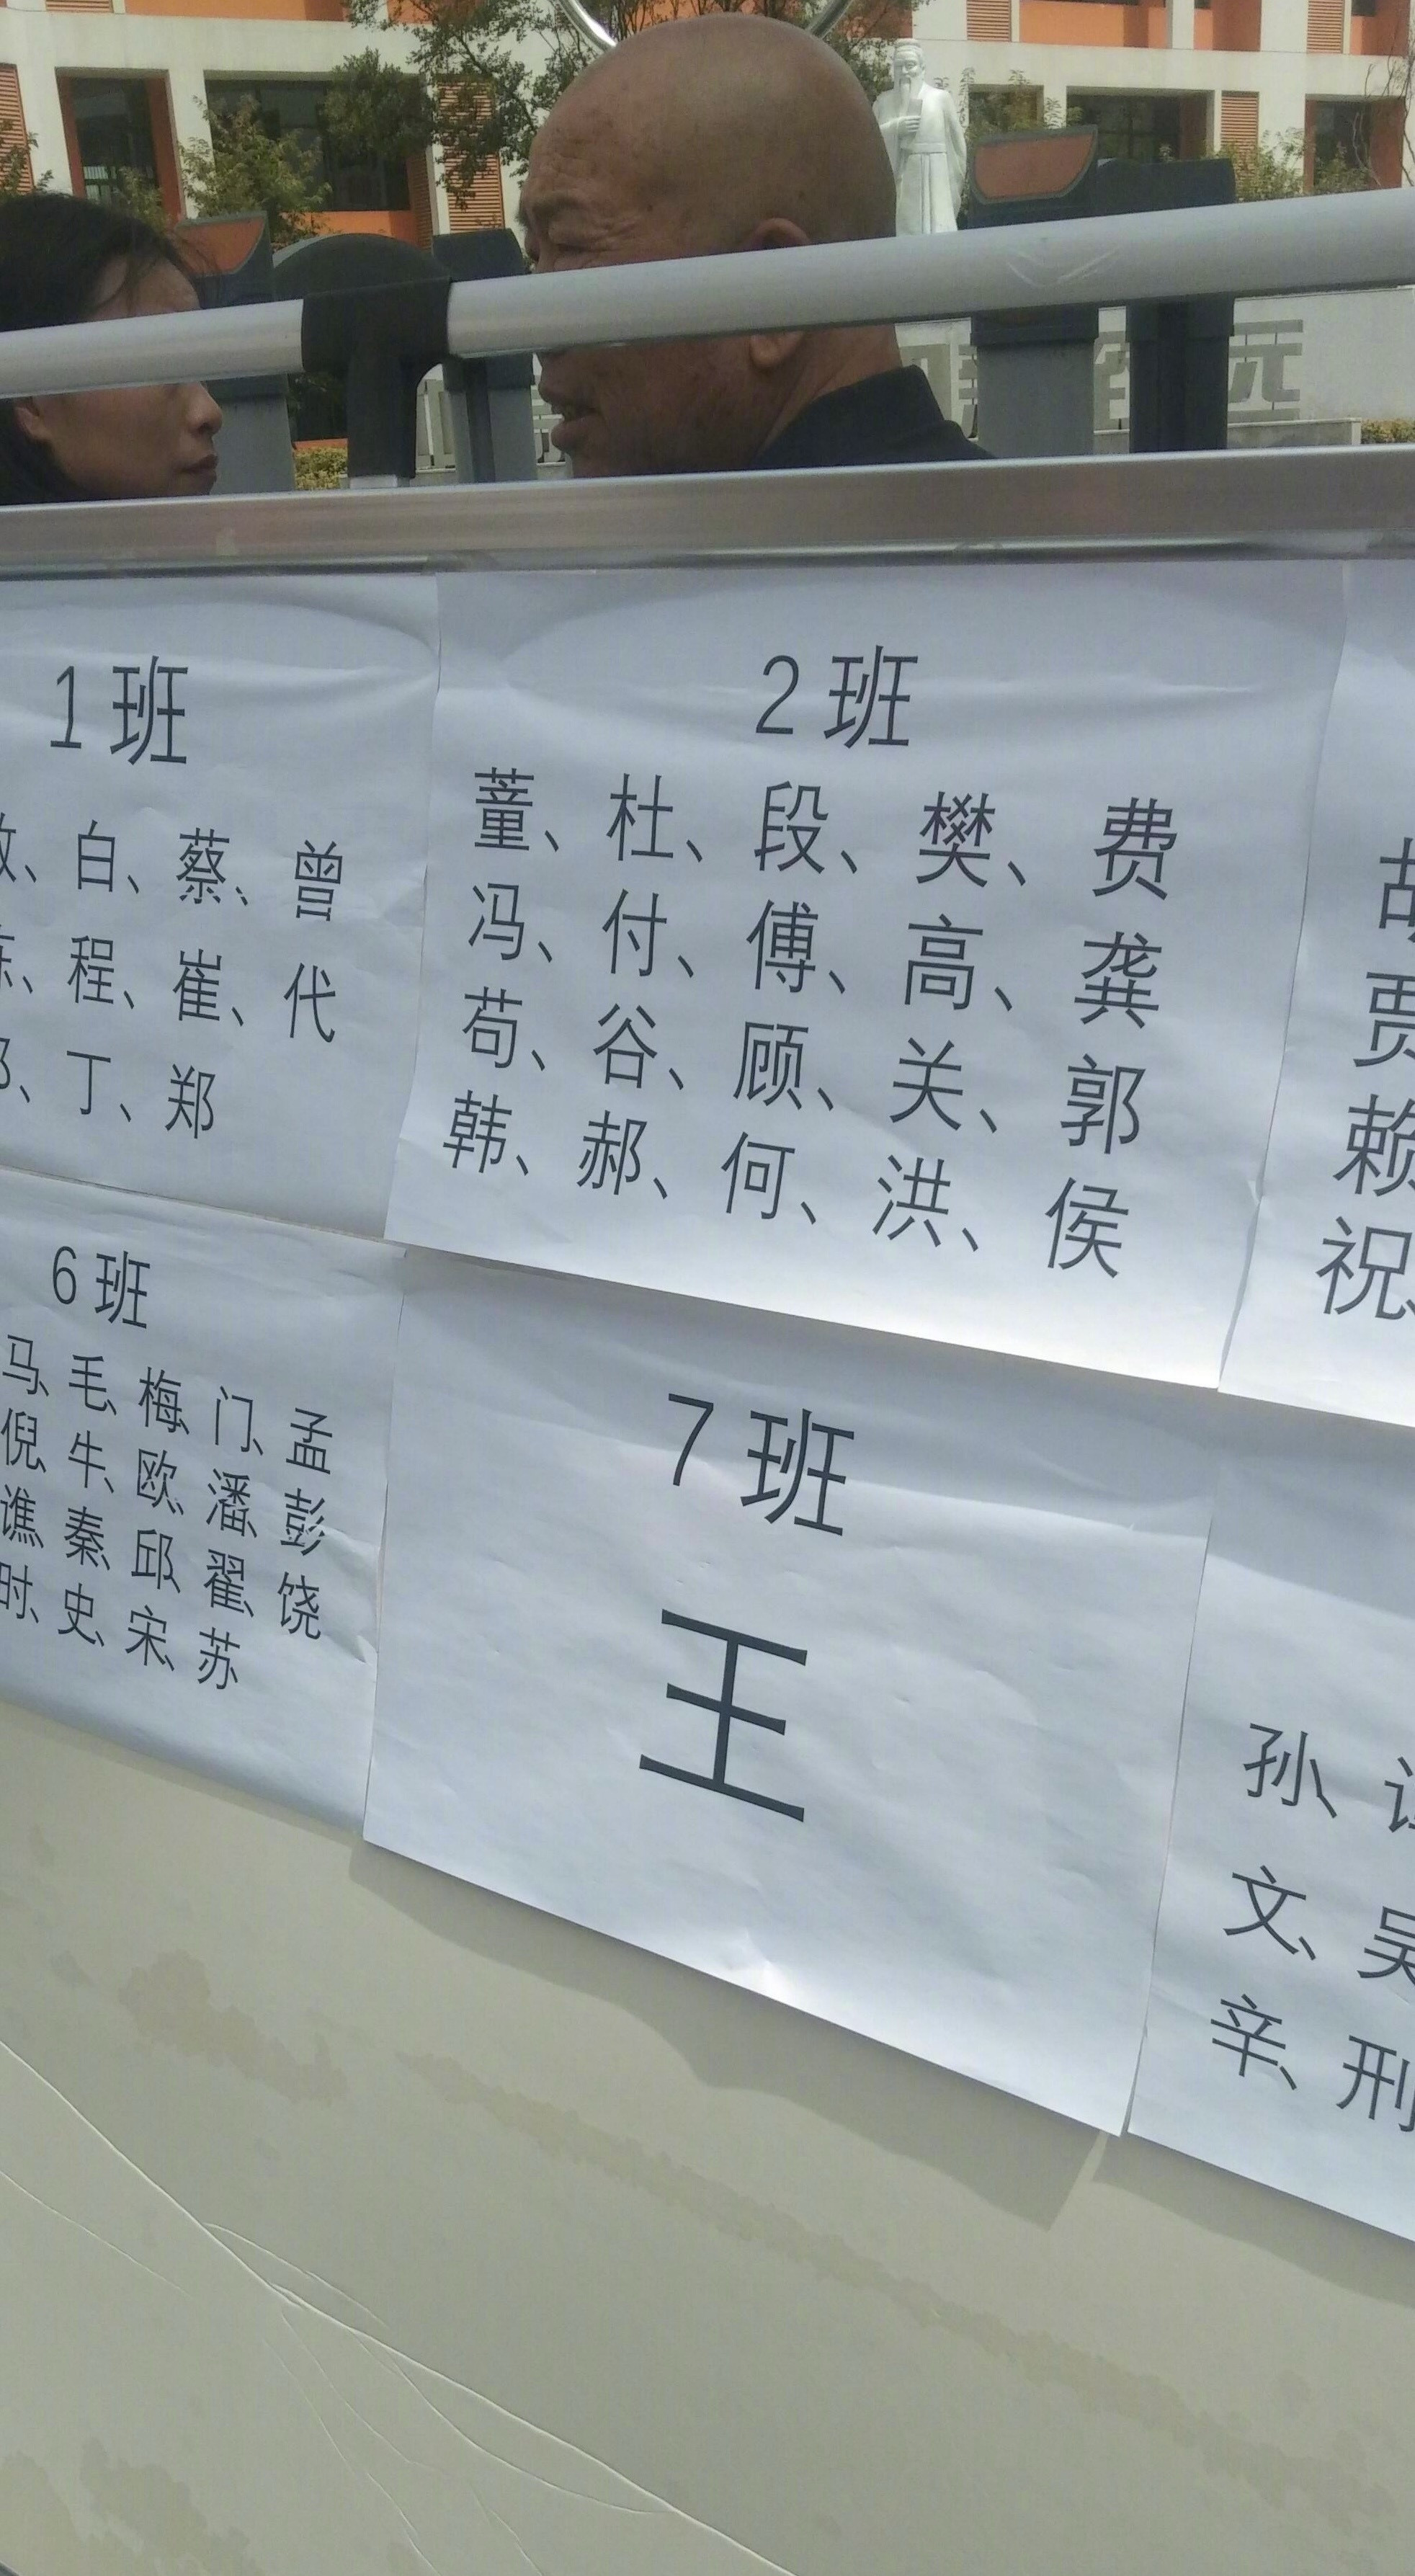 1班
白、蔡、曾
程、崔、代
丁、郑
2班
董、杜、段、樊、费
冯、付、傅、高、龚
苟、谷、顾、关、郭
韩、郝、何、洪、侯
贾
赖
祝、
6班
马、毛、梅、门、孟
倪、牛、欧、潘、彭
谯、秦、邱、翟、饶
时、史、宋、苏
7班
王
孙、
文、吴
辛、刑